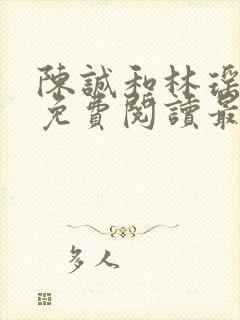 陳誠和林瑤
免費閱讀最
多人